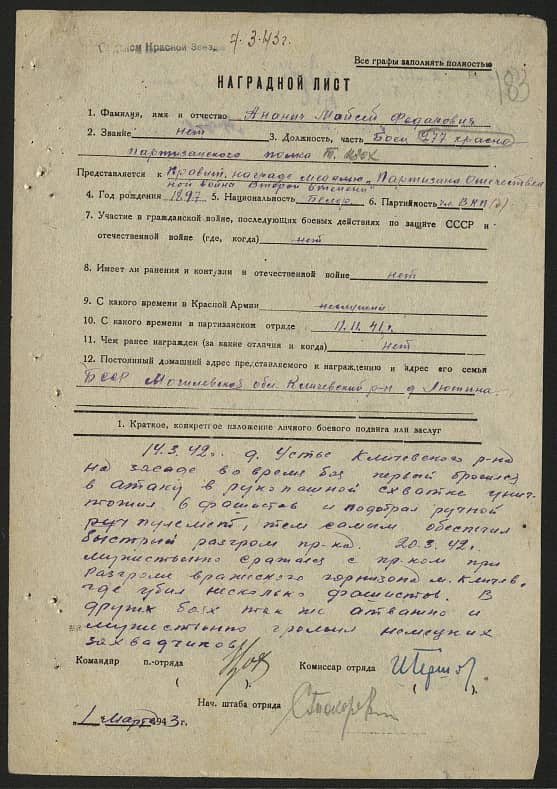 Орденом Красной Звезды 7.3.43г.
Все графы заполнять полностью
183
НАГРАДНОЙ ЛИСТ
1. Фамилия, имя и отчество Ананич Майсей Федарович
2. Звание нет 3. Должность, часть Боец 277 красно
партизанского полка т. Изох
Представляется к Правит. награде медалью „Партизана Отечествен
ной война Второй степени"
4. Год рождения 1897 5. Национальность Белор. 6. Партийность чл. ВКП(б)
7. Участие в гражданской войне, последующих боевых действиях по защите СССР и
отечественной войне (где, когда) нет
8. Имеет ли ранения и контузии в отечественной войне нет
9. С какого времени в Красной Армии
10. С какого времени в партизанском отряде 11.11.41г.
11. Чем ранее награжден (за какие отличия и когда) нет
12. Постоянный домашний адрес представляемого к награждению и адрес его семьи
БССР Могилевской обл. Кличевский р-н д. Лютина
1. Краткое, конкретное изложение личного боевого подвига или заслуг
14.3.42г. д. Устье Кличевского р-на
на засаде во время боя первый бросился
в атаку в рукопашной схватке унич
тожил 6 фашистов и подобрал ручной
пулемет, тем самым обеспечил
быстрый разгром пр-ка. 20.3.42г.
мужественно сражался с пр-ком при
разгроме вражеского гарнизона м. Кличев,
где убил несколько фашистов. В
других боях так же атважно и
мужественно громил немецких
захвадчиков.
Командир п.-отряда Комиссар отряда
( ). ( ).
Нач. штаба отряда
„1" Марта 1943г.